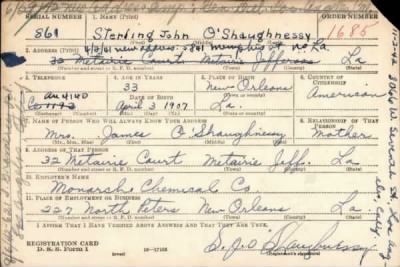 SERIAL NUMBER 1. NAME (Print) ORDER NUMBER
861 Sterling John O'Shaughnessy 1685
(First) (Middle) (Last)
4/3/61 new address: 5801 Memphis St. No. La.
2. ADDRESS (Print)
30 Metairie Court Metairie Jefferson La
3. TELEPHONE 4. AGE IN YEARS 5. PLACE OF BIRTH 6. COUNTRY OF CITIZENSHIP
33 New Orleans
4140 DATE OF BIRTH (Town or county) American
Ce 1173 April 3 1907 La.
(Exchange) (Number) (Mo.) (Day) (Yr.) (State or country)
7. NAME OF PERSON WHO WILL ALWAYS KNOW YOUR ADDRESS 8. RELATIONSHIP OF THAT PERSON
Mrs. James O'Shaughnessy Mother
(Mr., Mrs., Miss) (First) (Middle) (Last)
9. ADDRESS OF THAT PERSON
32 Metairie Court Metairie Jeff. La
(Number and street or R. F. D. number) (Town) (County) (State)
10. EMPLOYER'S NAME
Monarch Chemical Co.
11. PLACE OF EMPLOYMENT OR BUSINESS
327 North Peters New Orleans La
(Number and street or R. F. D. number) (Town) (County) (State)
I AFFIRM THAT I HAVE VERIFIED ABOVE ANSWERS AND THAT THEY ARE TRUE.
REGISTRATION CARD
D. S. S. Form 1 (over) 16-17105 S. J. O'Shaughnessy
(Registrant's signature)
11-2-42 3066 W. Seventh St., Los Angeles, Calif